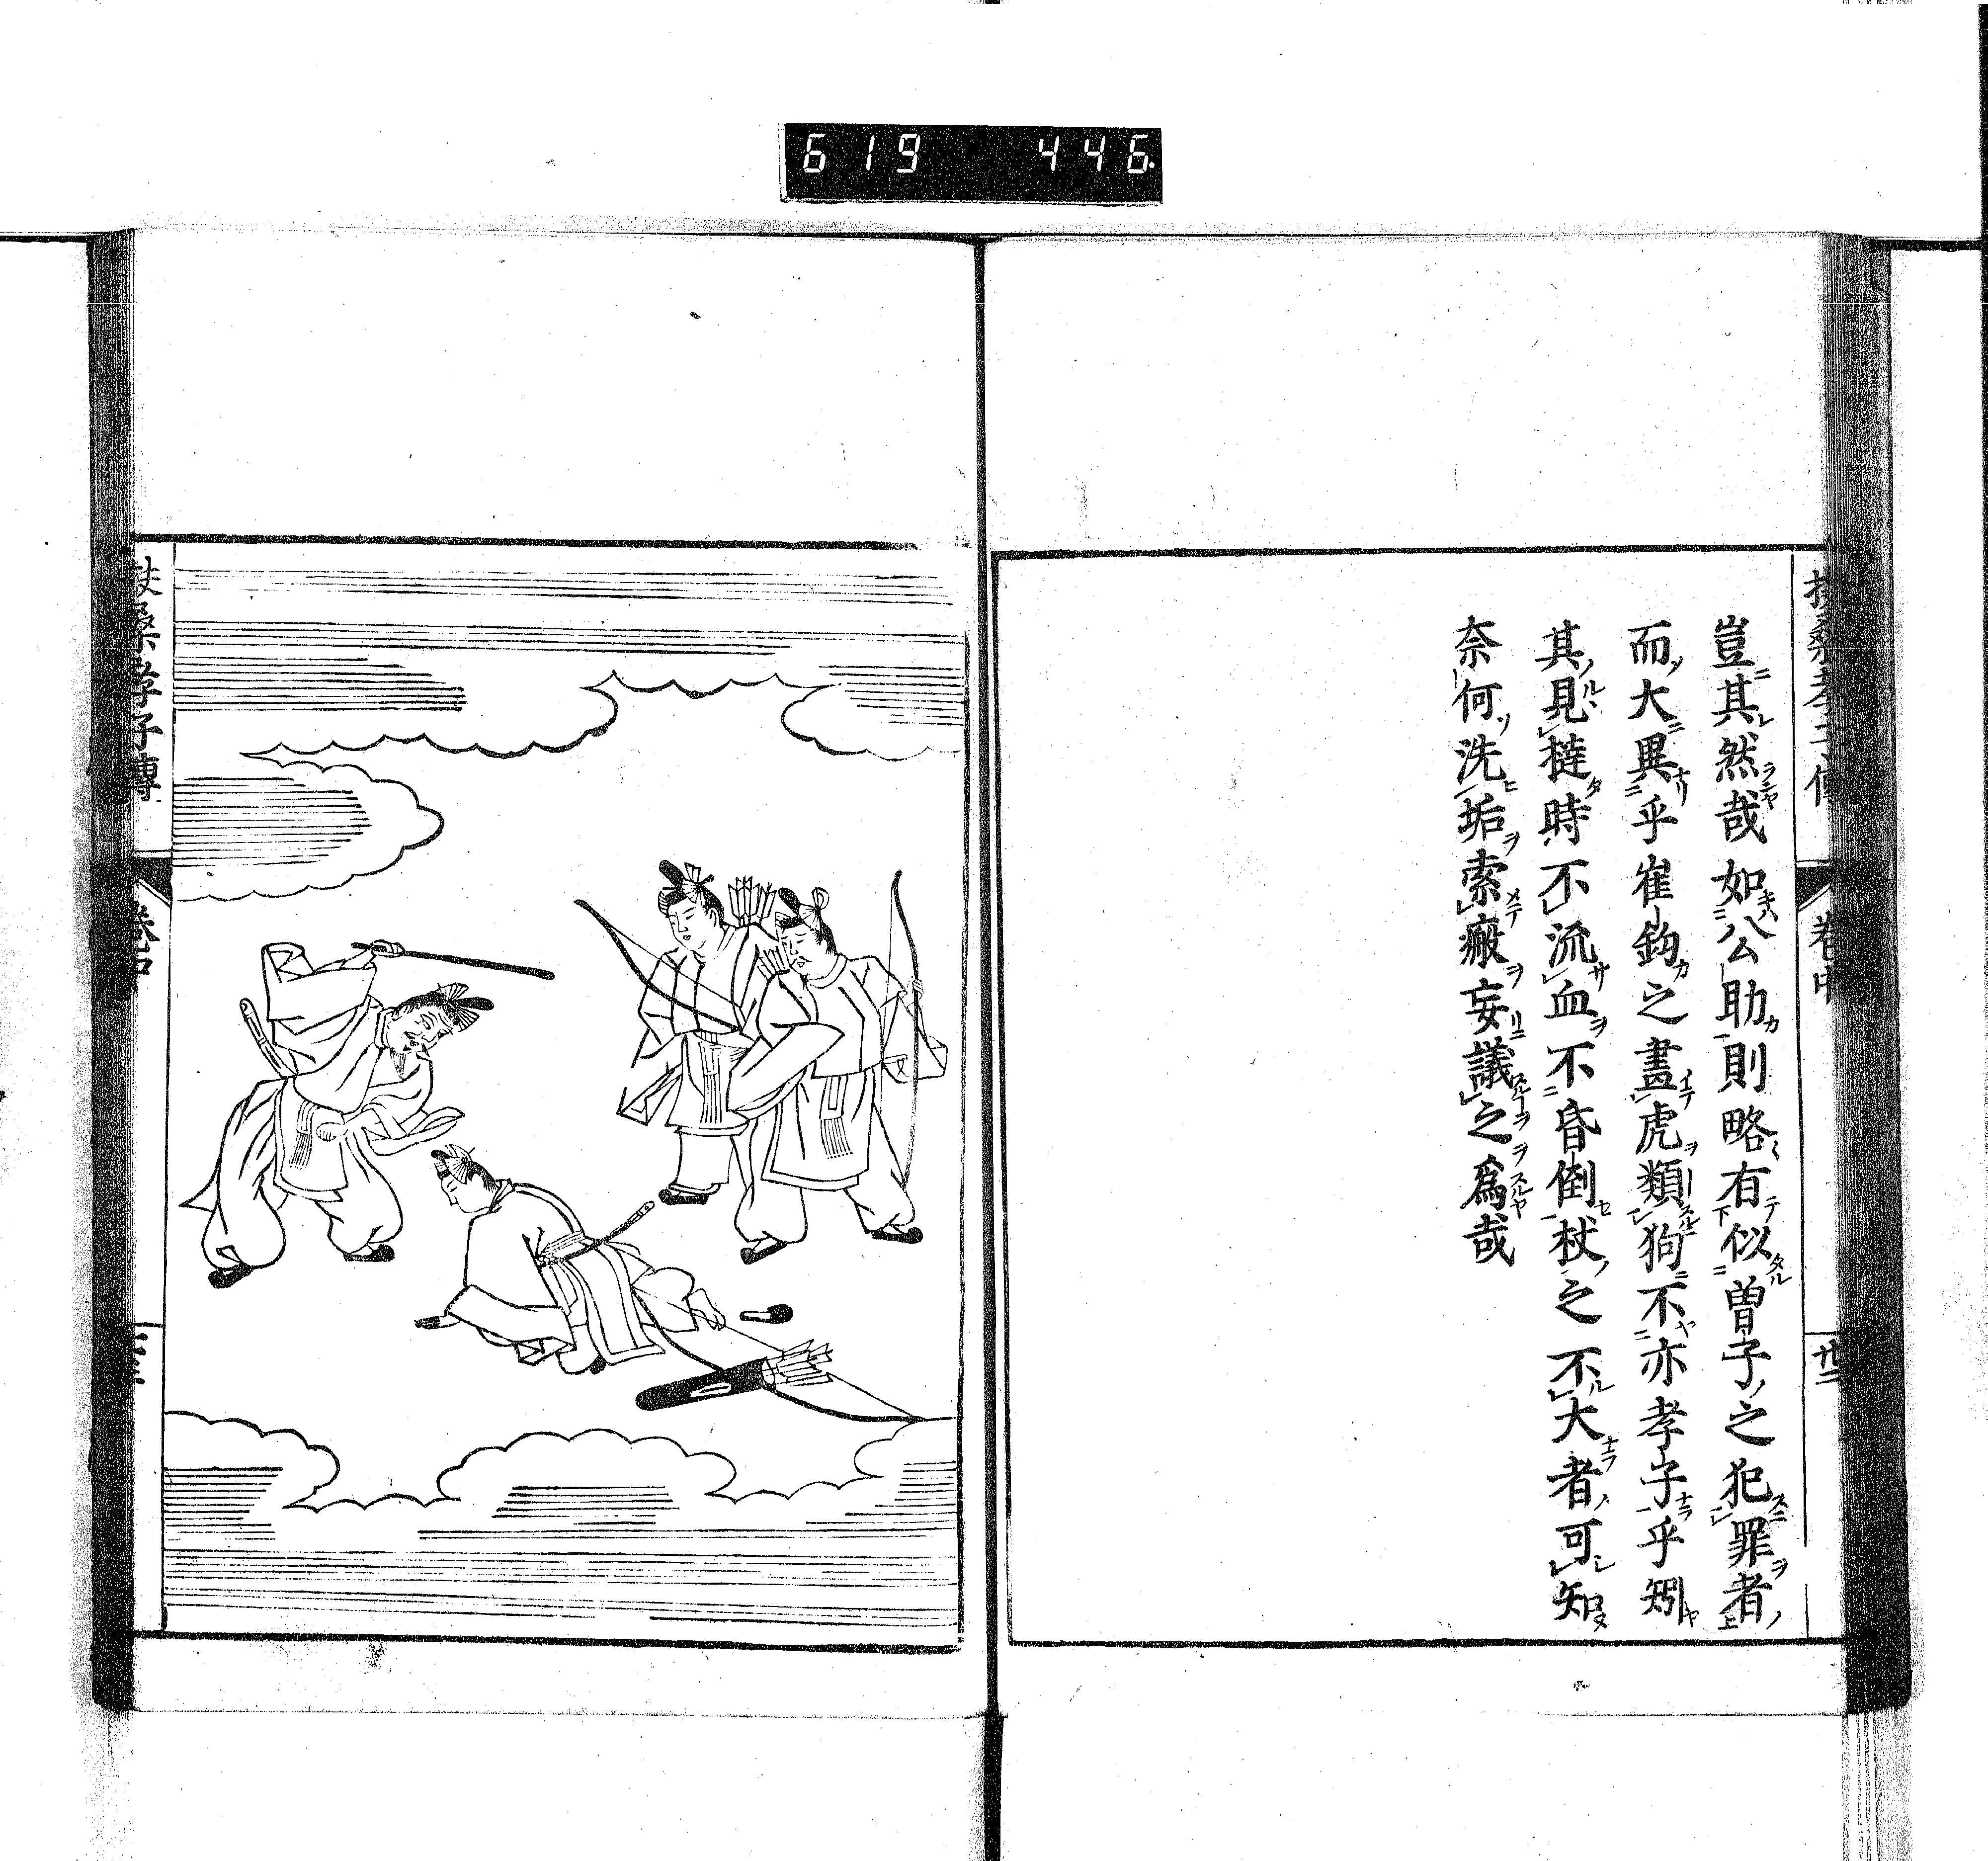 619 446.
扶桑孝子傳
卷中
廿二
豈其然哉如公助則略有似曽子之犯罪者
而大異乎崔鈞之畫虎類狗不亦孝子乎矧
其見撻時不流血不昏倒杖之不大者可知
奈何洗垢索瘢妄議之爲哉
扶桑孝子傳